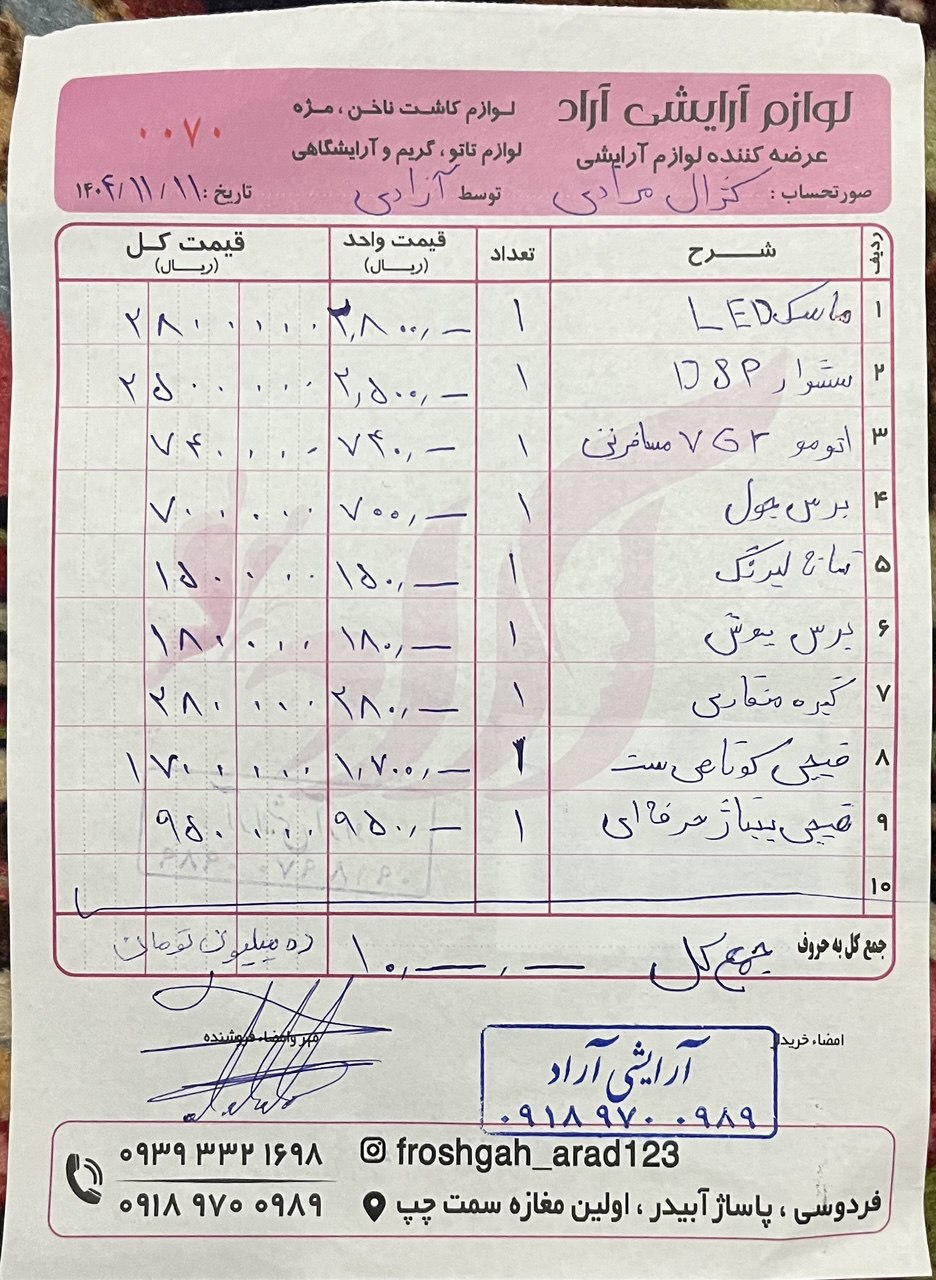 لوازم آرایشی آراد
لوازم کاشت ناخن ، مژه
۰۰۷۰
عرضه کننده لوازم آرایشی
لوازم تاتو ، گریم و آرایشگاهی
صورتحساب : کژال مرادی توسط آزادی تاریخ : ۱۴۰۴/۱۱/۱۱
ردیف شرح تعداد قیمت واحد (ریال) قیمت کل (ریال)
۱ ماسک LED ۱ ۲,۸۰۰,— ۲۸۰۰۰۰۰
۲ سشوار DSP ۱ ۲,۵۰۰,— ۲۵۰۰۰۰۰
۳ اتو مو VGR مسافرتی ۱ ۷۴۰,— ۷۴۰۰۰۰
۴ برس بول ۱ ۷۰۰,— ۷۰۰۰۰۰
۵ ۱ ۱۵۰,— ۱۵۰۰۰۰
۶ برس پوش ۱ ۱۸۰,— ۱۸۰۰۰۰
۷ گیره منقاری ۱ ۲۸۰,— ۲۸۰۰۰۰
۸ قیچی کوتاهی ست ۱ ۱,۷۰۰,— ۱۷۰۰۰۰۰
۹ قیچی پیتاژ حرفه‌ای ۱ ۹۵۰,— ۹۵۰۰۰۰
۱۰
جمع کل به حروف جمع کل ۱۰,—,— ده میلیون تومان
امضاء خریدار
مهر و امضاء فروشنده
آرایشی آراد
۰۹۱۸ ۹۷۰ ۰۹۸۹
۰۹۳۹ ۳۳۲ ۱۶۹۸
froshgah_arad123
۰۹۱۸ ۹۷۰ ۰۹۸۹
فردوسی ، پاساژ آبیدر ، اولین مغازه سمت چپ